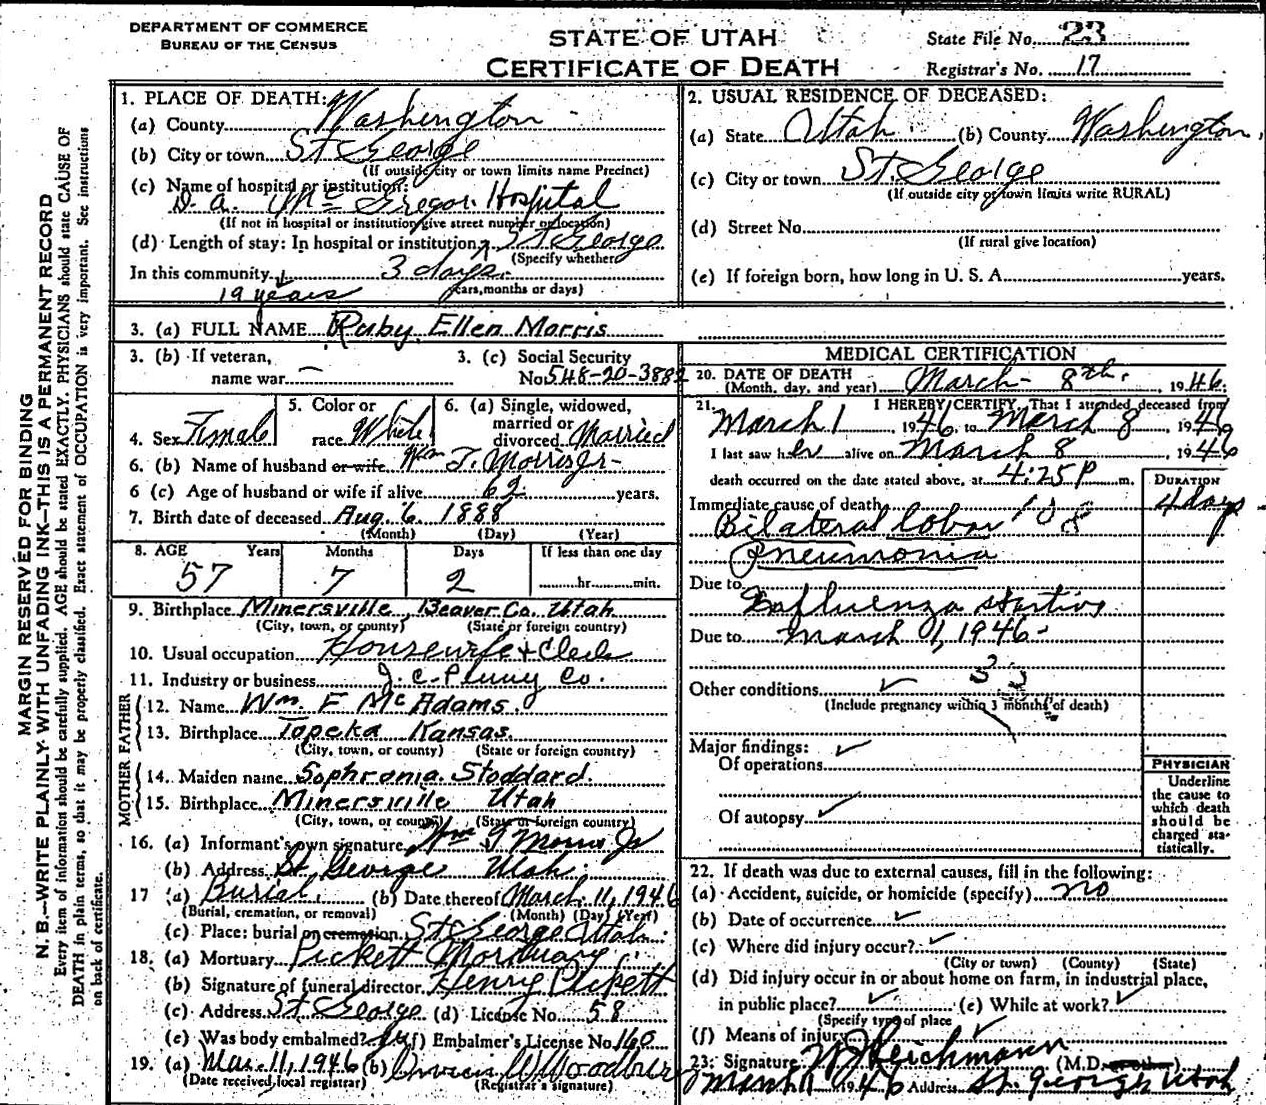 DEPARTMENT OF COMMERCE
BUREAU OF THE CENSUS
STATE OF UTAH
CERTIFICATE OF DEATH
State File No. 23
Registrar's No. 17
MARGIN RESERVED FOR BINDING
N. B.—WRITE PLAINLY WITH UNFADING INK—THIS IS A PERMANENT RECORD
Every item of information should be carefully supplied. AGE should be stated EXACTLY. PHYSICIANS should state CAUSE OF
DEATH in plain terms, so that it may be properly classified. Exact statement of OCCUPATION is very important. See instructions
on back of certificate.
1. PLACE OF DEATH:
(a) County Washington
(b) City or town St George
(If outside city or town limits name Precinct)
(c) Name of hospital or institution:
D. A. McGregor Hospital
(If not in hospital or institution give street number or location)
(d) Length of stay: In hospital or institution St George
(Specify whether
In this community 3 days
19 years
years, months or days)
2. USUAL RESIDENCE OF DECEASED:
(a) State Utah (b) County Washington
(c) City or town St. George
(If outside city or town limits write RURAL)
(d) Street No.
(If rural give location)
(e) If foreign born, how long in U. S. A. years.
3. (a) FULL NAME Ruby Ellen Morris
3. (b) If veteran,
name war —
3. (c) Social Security
No. 548-20-3882
4. Sex Female
5. Color or
race White
6. (a) Single, widowed,
married or
divorced Married
6. (b) Name of husband or wife Wm F. Morris Jr
6 (c) Age of husband or wife if alive 62 years.
7. Birth date of deceased Aug. 6. 1888
(Month) (Day) (Year)
8. AGE Years Months Days If less than one day
57 7 2 hr. min.
9. Birthplace Minersville, Beaver Co. Utah
(City, town, or county) (State or foreign country)
10. Usual occupation Housewife & Clerk
11. Industry or business J. C. Penny Co.
FATHER
12. Name Wm. F McAdams
13. Birthplace Topeka Kansas
(City, town, or county) (State or foreign country)
MOTHER
14. Maiden name Sophronia Stoddard
15. Birthplace Minersville Utah
(City, town, or county) (State or foreign country)
16. (a) Informant's own signature Wm F Morris Jr
(b) Address St George Utah
17 (a) Burial (b) Date thereof March 11, 1946
(Burial, cremation, or removal) (Month) (Day) (Year)
(c) Place: burial or cremation St George Utah
18. (a) Mortuary Pickett Mortuary
(b) Signature of funeral director Henry Pickett
(c) Address St George (d) License No. 58
(e) Was body embalmed? (f) Embalmer's License No. 160
19. (a) Mar. 11, 1946 (b) Woodbury
(Date received local registrar) (Registrar's signature)
MEDICAL CERTIFICATION
20. DATE OF DEATH
(Month, day, and year) March 8th, 1946
21. I HEREBY CERTIFY, That I attended deceased from
March 1 1946, to March 8, 1946
I last saw her alive on March 8 1946
death occurred on the date stated above, at 4:25 P m.
DURATION
Immediate cause of death 4 days
Bilateral Lobar 108
Pneumonia
Due to
Influenza starting
Due to March 1, 1946
33
Other conditions ✓
(Include pregnancy within 3 months of death)
Major findings: ✓
Of operations
Of autopsy ✓
PHYSICIAN
Underline
the cause to
which death
should be
charged sta-
tistically.
22. If death was due to external causes, fill in the following:
(a) Accident, suicide, or homicide (specify) no
(b) Date of occurrence ✓
(c) Where did injury occur? ✓
(City or town) (County) (State)
(d) Did injury occur in or about home on farm, in industrial place,
in public place? ✓ (e) While at work? ✓
(Specify type of place
(f) Means of injury ✓
23. Signature W J Reichmann (M.D. or other)
March 11 1946 Address St. George Utah